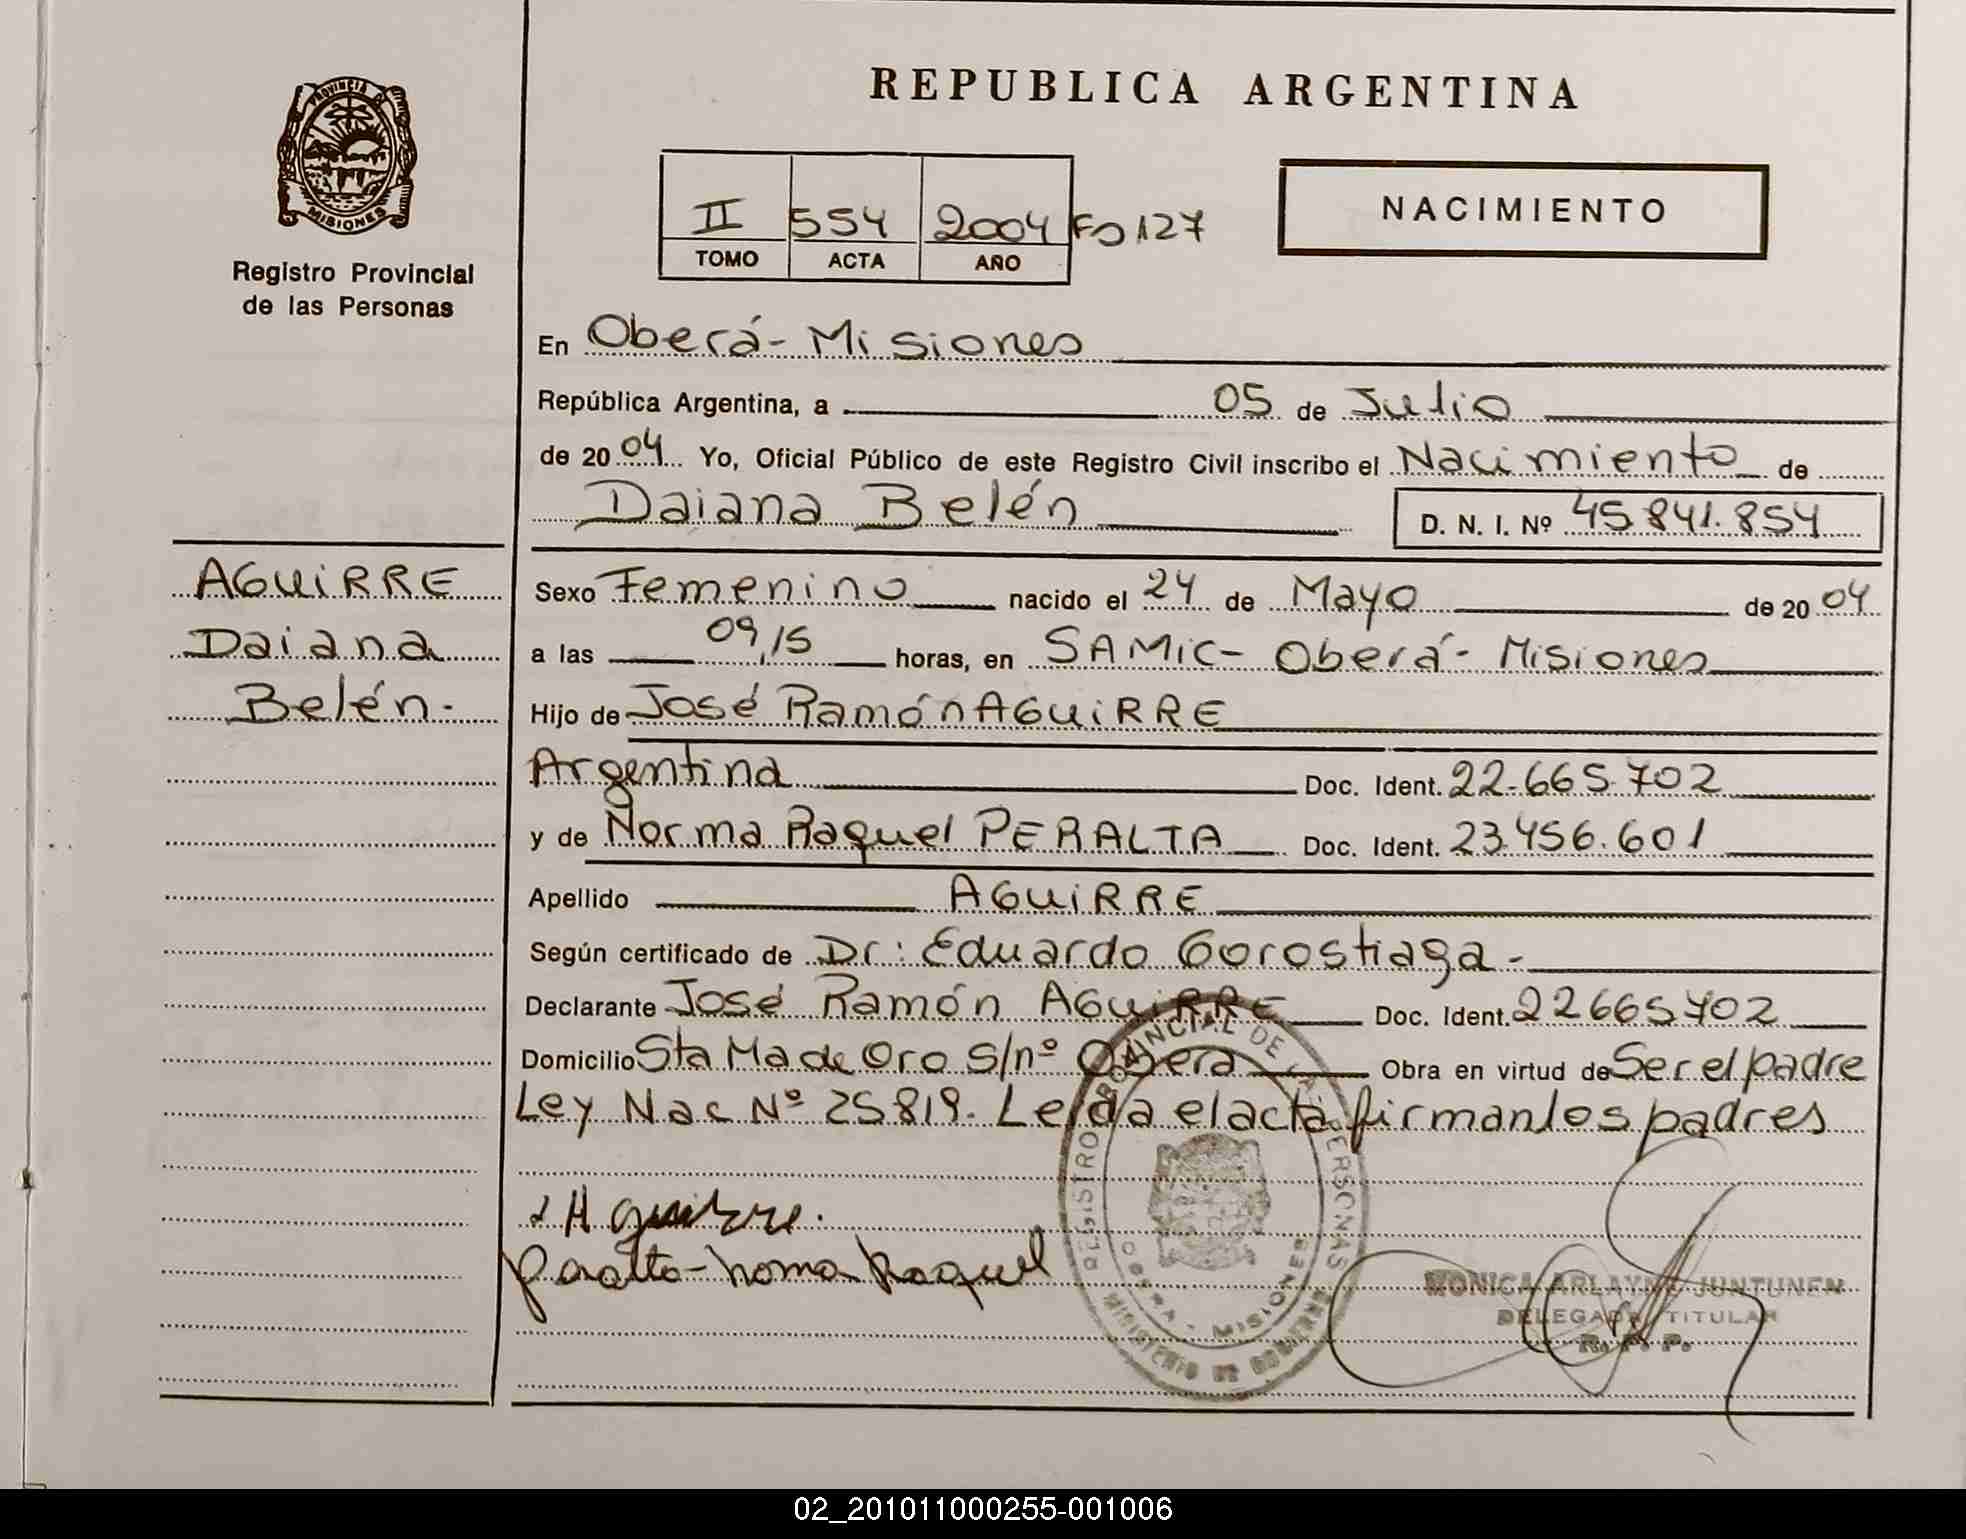 REPUBLICA ARGENTINA
PROVINCIA D
MISIONES
Registro Provincial
de las Personas
II 554 2004 Fo 127
TOMO ACTA AÑO
NACIMIENTO
En Oberá - Misiones
República Argentina, a 05 de Julio
de 2004 Yo, Oficial Público de este Registro Civil inscribo el Nacimiento de
Daiana Belén D. N. I. Nº 45.841.854
AGUiRRE
Daiana
Belén.
Sexo Femenino nacido el 24 de Mayo de 2004
a las 09,15 horas, en SAMiC - Oberá - Misiones
Hijo de José Ramón AGUiRRE
Argentina Doc. Ident. 22.665.702
y de Norma Raquel PERALTA Doc. Ident. 23.456.601
Apellido AGUiRRE
Según certificado de Dr: Eduardo Gorostiaga -
Declarante José Ramón AGUiRRE Doc. Ident. 22665702
Domicilio Sta Ma de Oro S/nº Oberá Obra en virtud de Ser el padre
Ley Nac Nº 25.819. Leída el acta firman los padres
Aguirre.
Peralta - Norma Raquel
REGISTRO PROVINCIAL DE LAS PERSONAS
OBERA - MISIONES
MINISTERIO DE GOBIERNO
MONICA ARLAYNE JUNTUNEN
DELEGADA TITULAR
R. P. P.
02_201011000255-001006